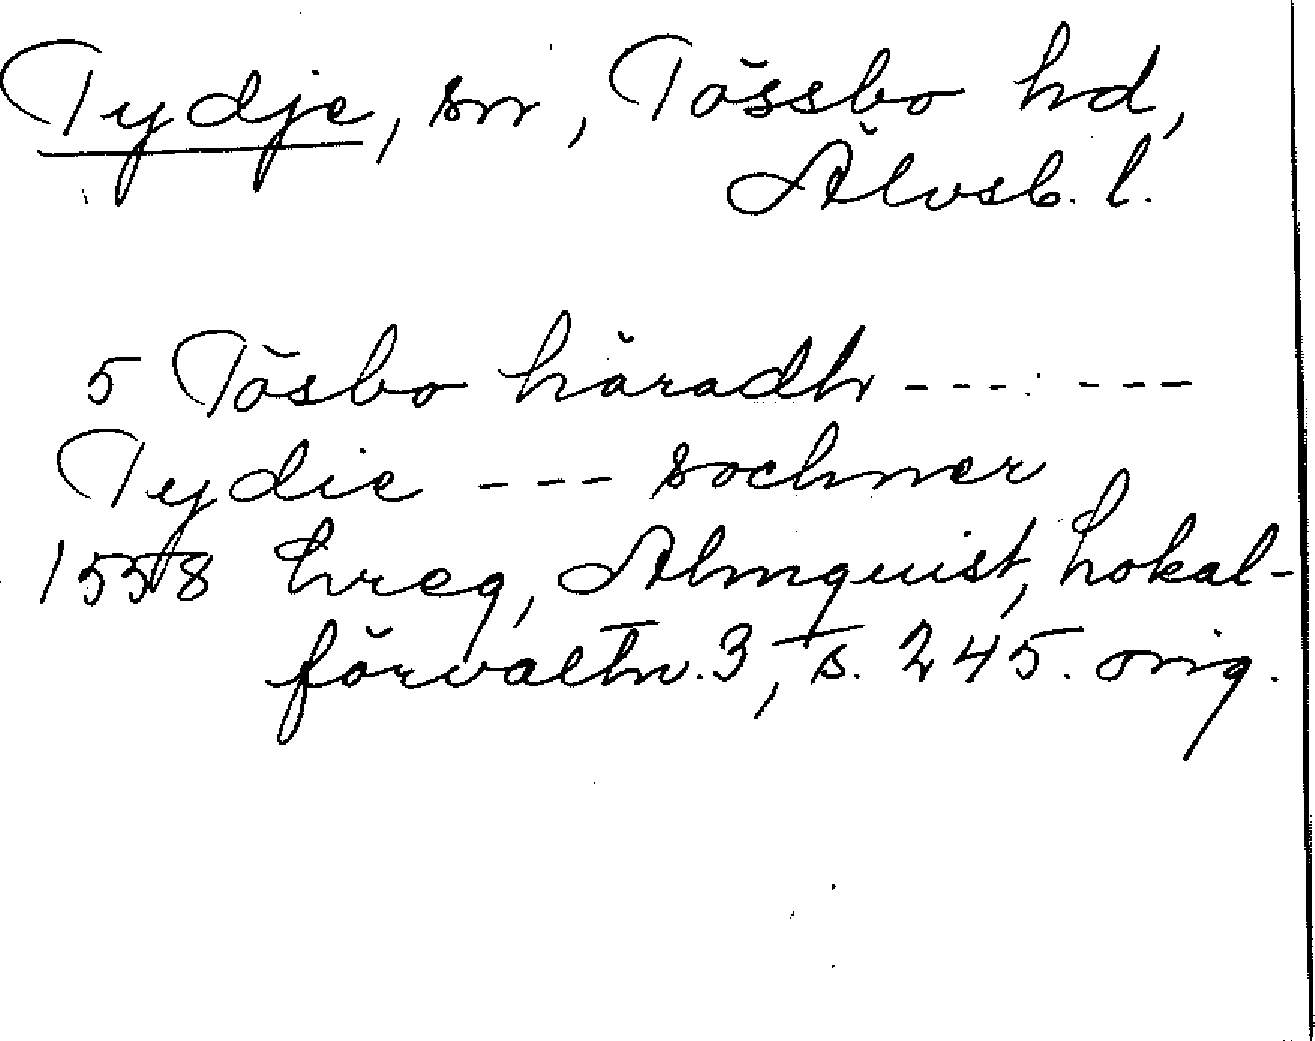 Tydje, sn, Tössbo hd,
Älvsb. l.
5 Tösbo häradh --- ---
Tydie --- sochner
1558 hreg, Almquist, Lokal-
förvaltn. 3, s. 245. orig.